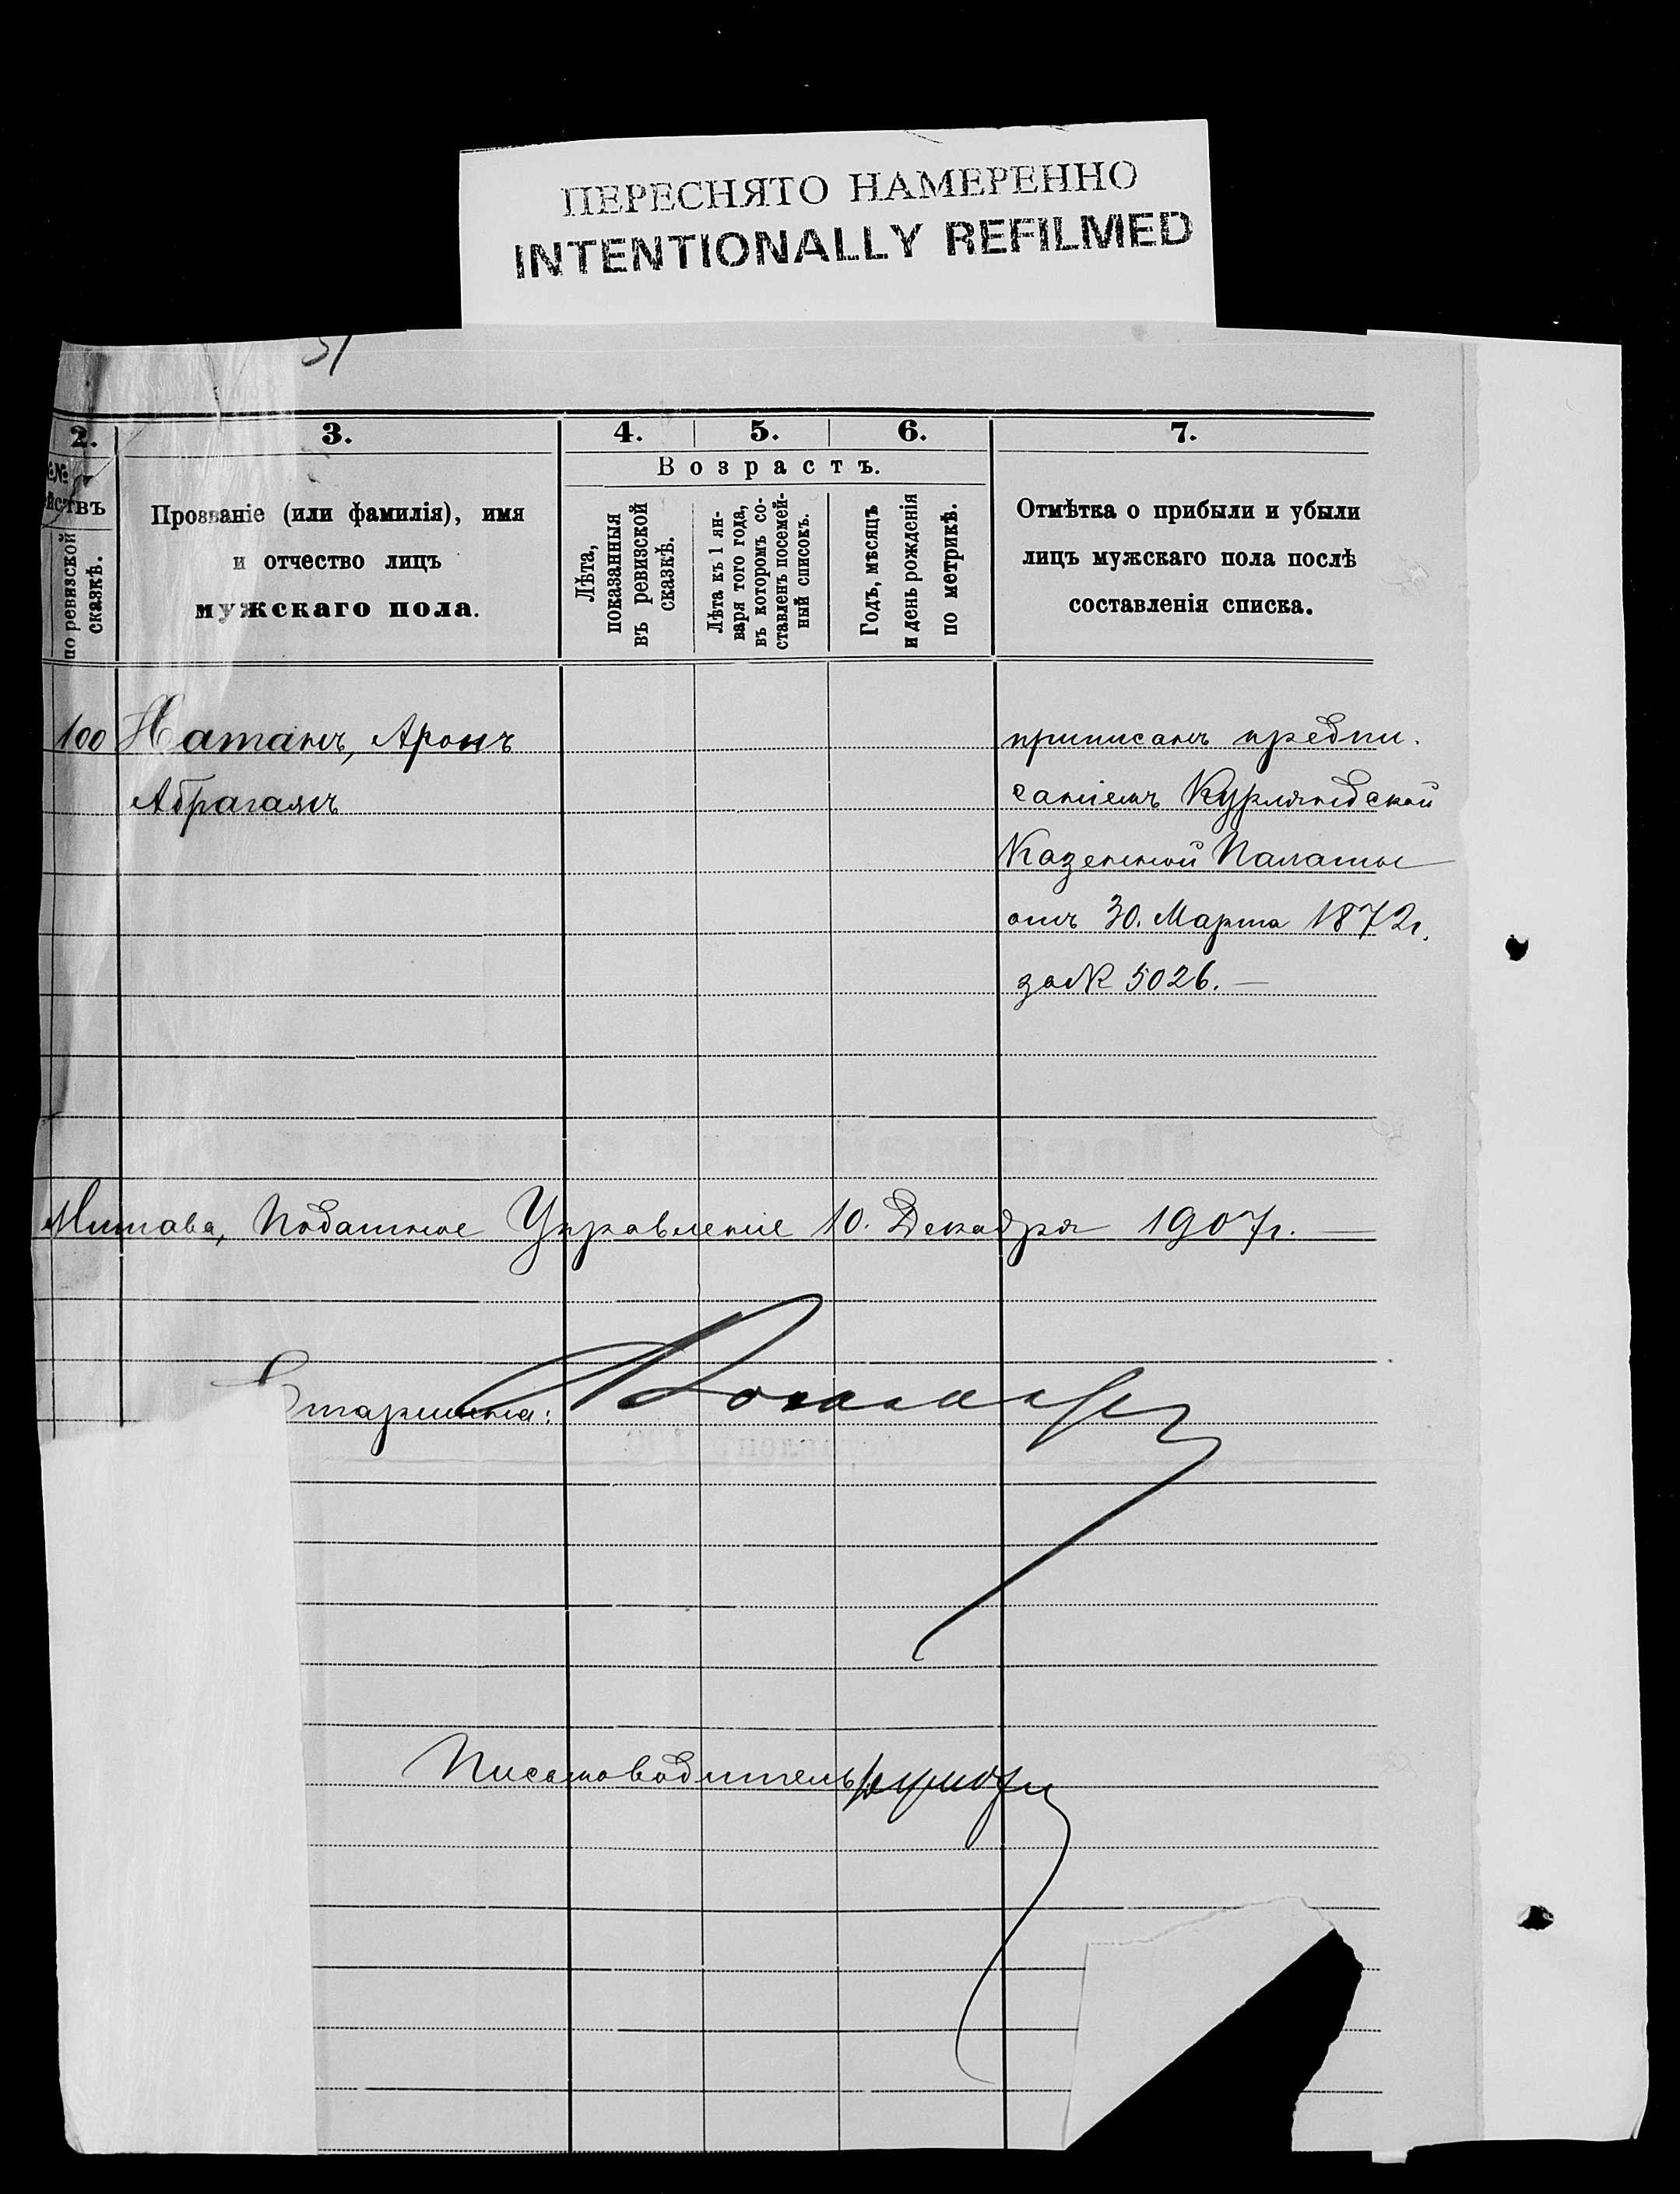 ПЕРЕСНЯТО НАМЕРЕННО
INTENTIONALLY REFILMED
2.
3.
4.
5.
6.
7.
Возрастъ.
по ревизской
сказкѣ.
Прозваніе (или фамилія), имя
и отчество лицъ
мужскаго пола.
Лѣта,
показанныя
въ ревизской
сказкѣ.
Лѣта къ 1 ян-
варя того года,
въ которомъ со-
ставленъ посемей-
ный списокъ.
Годъ, мѣсяцъ
и день рожденія
по метрикѣ.
Отмѣтка о прибыли и убыли
лицъ мужскаго пола послѣ
составленія списка.
100 Натанъ, Аронъ
Абрагамъ
приписанъ предпи.
саніемъ Курляндской
Казенной Палаты
отъ 30. Марта 1872г.
за № 5026. —
Митава, Податное Управленіе 10. Декабря 1907г. —
Старшина:
Письмоводитель